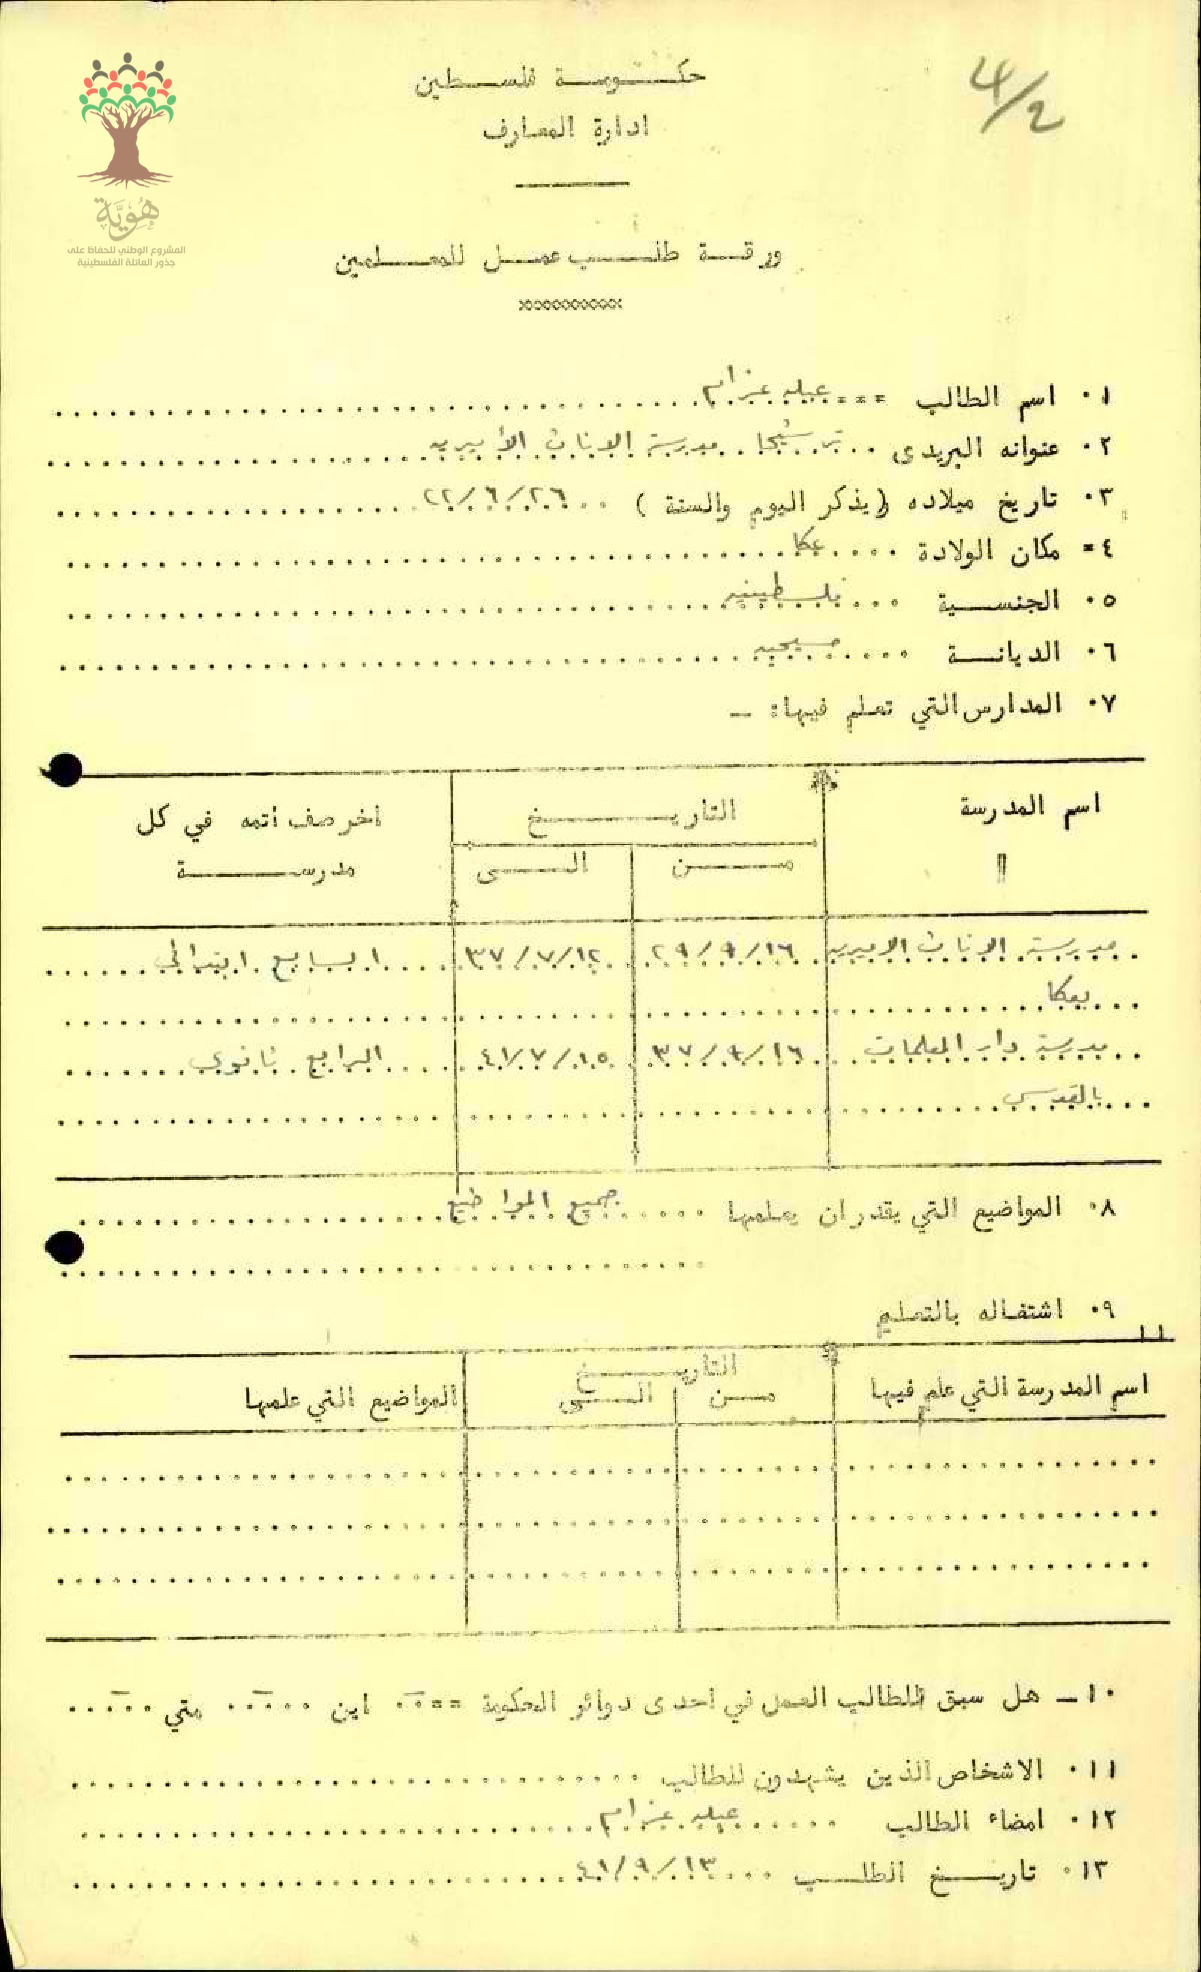 ٤/٢
هوية
المشروع الوطني للحفاظ على
جذور العائلة الفلسطينية
حكومة فلسطين
ادارة المعارف
ورقة طلب عمل للمعلمين
١٠ اسم الطالب عبله عزام
٢٠ عنوانه البريدى ترشيحا مدرسة الاناث الأميرية
٣٠ تاريخ ميلاده (يذكر اليوم والسنة) ٢٢/٦/٢٦
٤= مكان الولادة عكا
٥٠ الجنسية فلسطينيه
٦٠ الديانة مسيحيه
٧٠ المدارس التي تعلم فيها: -
اسم المدرسة التاريخ اخر صف اتمه في كل
من الى مدرسة
مدرسة الاناث الاميريه ٢٩/٩/١٦ ٣٧/٧/١٢ السابع ابتدائي
بعكا
مدرسة دار المعلمات ٣٧/٩/١٦ ٤١/٧/١٥ الرابع ثانوي
بالقدس
٨٠ المواضيع التي يقدر ان يعلمها جميع المواضيع
٩٠ اشتغاله بالتعليم
اسم المدرسة التي علم فيها التاريخ المواضيع التي علمها
من الى
١٠- هل سبق للطالب العمل في احدى دوائر الحكومة == اين متي
١١٠ الاشخاص الذين يشهدون للطالب
١٢٠ امضاء الطالب عبله عزام
١٣٠ تاريخ الطلب ٤١/٩/١٣